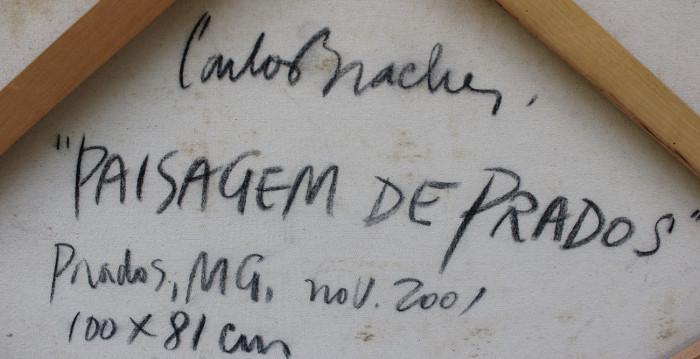 Carlos Bracher,
"PAISAGEM DE PRADOS"
Prados, MG, nov. 2001
100 x 81 cm